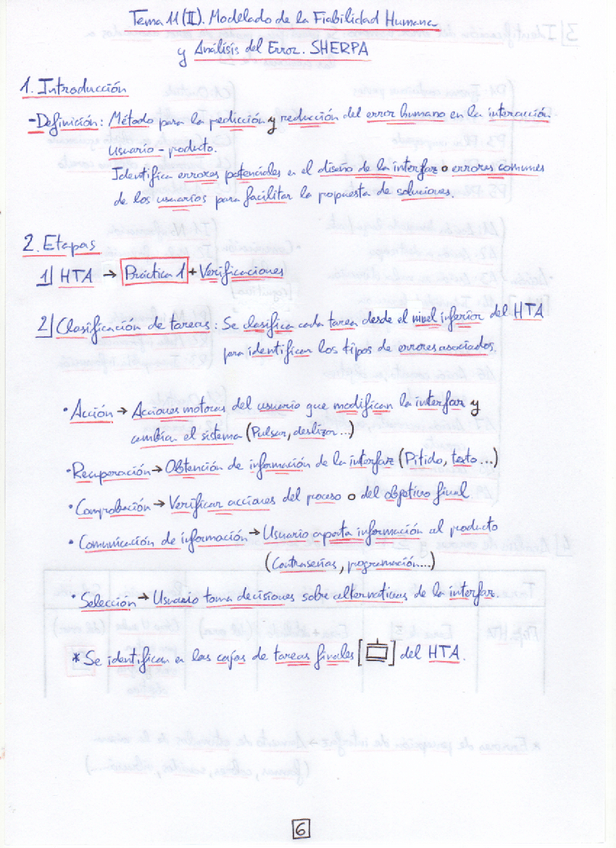 Tema 11 (II). Modelado de la Fiabilidad Humana
y Análisis del Error. SHERPA
1. Introducción
- Definición: Método para la predicción y reducción del error humano en la interacción
usuario - producto.
Identifica errores potenciales en el diseño de la interfaz o errores comunes
de los usuarios para facilitar la propuesta de soluciones.
2. Etapas
1] HTA → Práctica 1 + Verificaciones
2] Clasificación de tareas: Se clasifica cada tarea desde el nivel inferior del HTA
para identificar los tipos de errores asociados.
• Acción → Acciones motoras del usuario que modifican la interfaz y
cambian el sistema (Pulsar, deslizar...)
• Recuperación → Obtención de información de la interfaz (Pitido, texto...)
• Comprobación → Verificar acciones del proceso o del objetivo final
• Comunicación de información → Usuario aporta información al producto
(Contraseñas, programación...)
• Selección → Usuario toma decisiones sobre alternativas de la interfaz.
* Se identifican en las cajas de tareas finales [ ] del HTA.
6